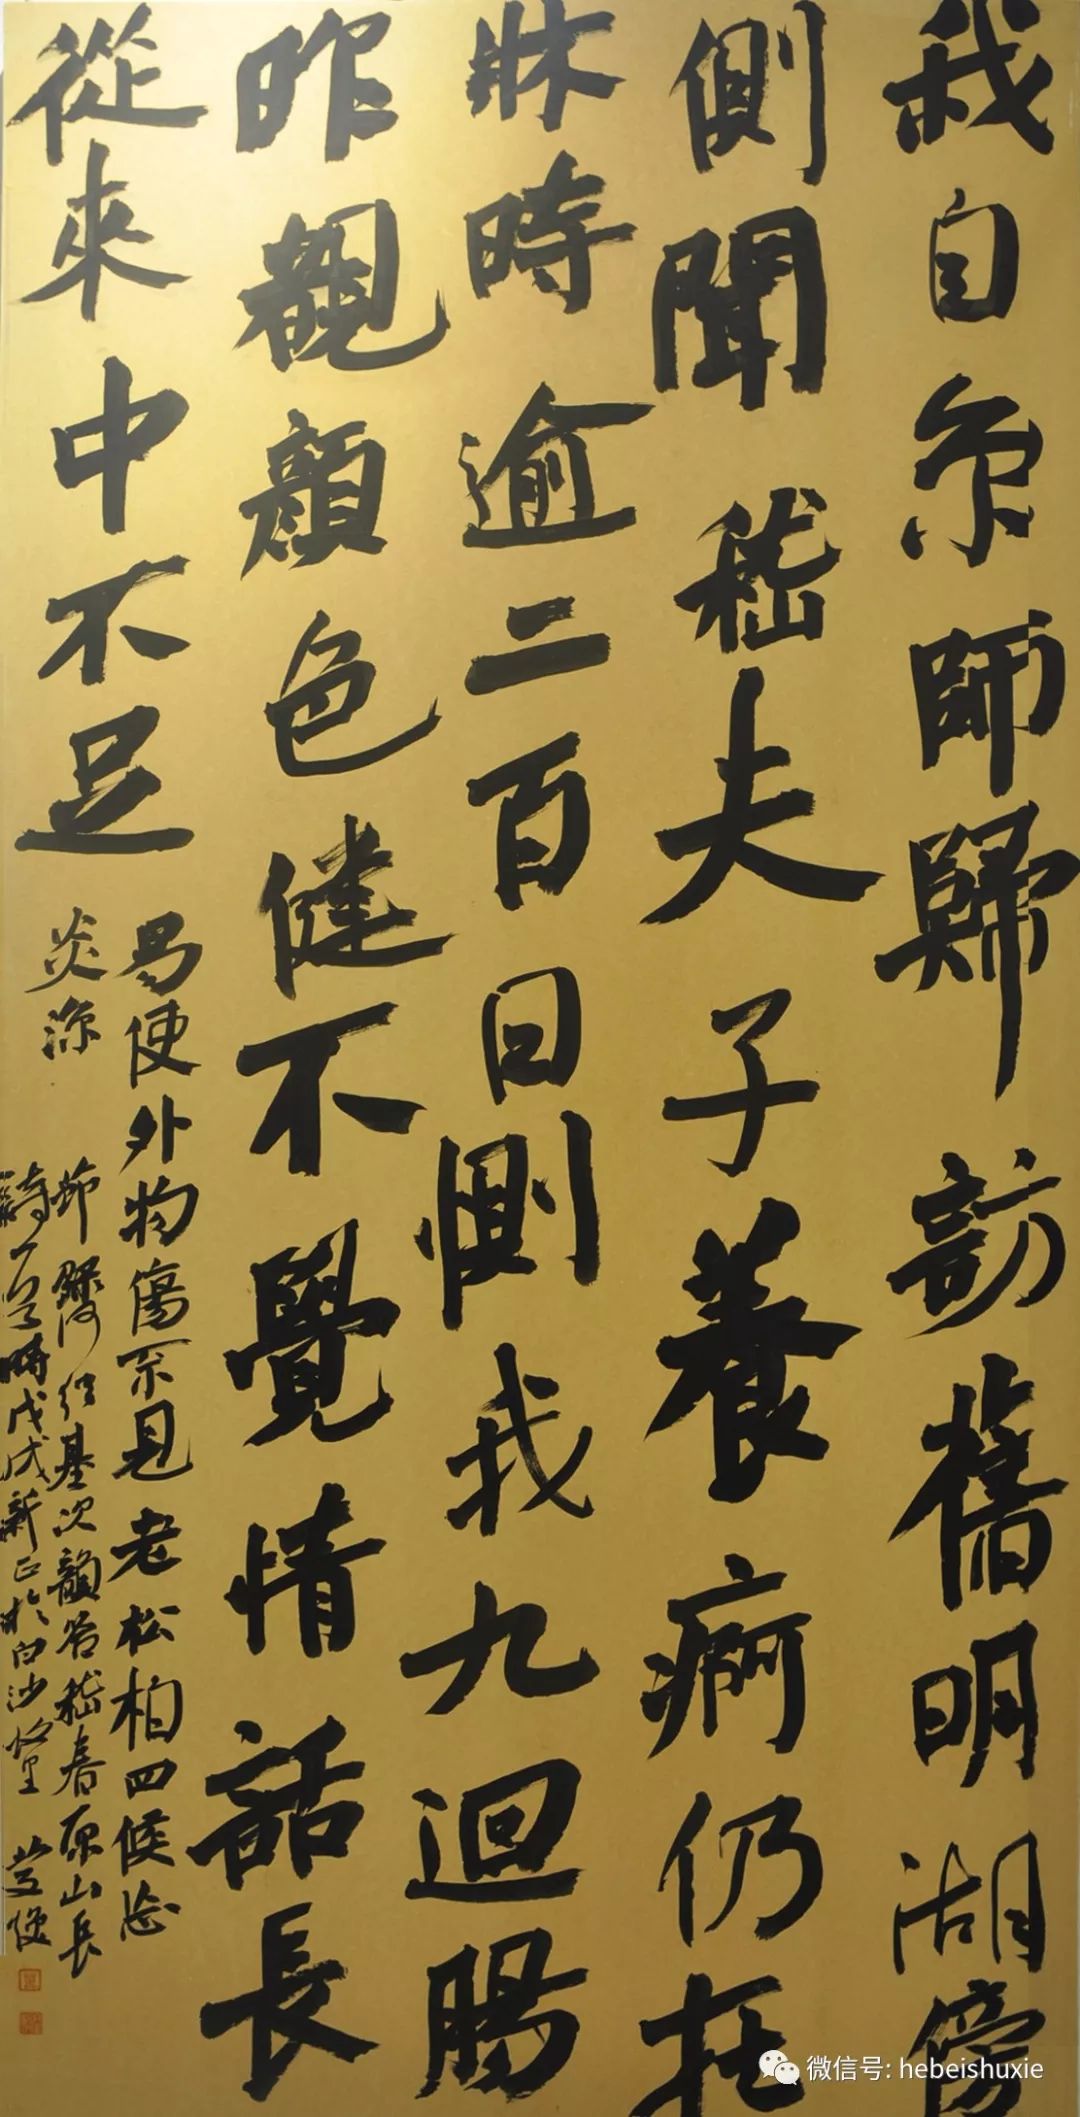 我自京師歸訪舊明湖傍
側聞嵇夫子養痾仍托
牀時逾二百日惻我九迴腸
昨觀顏色健不覺情話長
從來中不足
易使外物傷不見老松柏四候忘
炎涼
節錄何紹基次韻答嵇春原山長
詩一首時戊戌新正於白沙堂
微信号: hebeishuxie